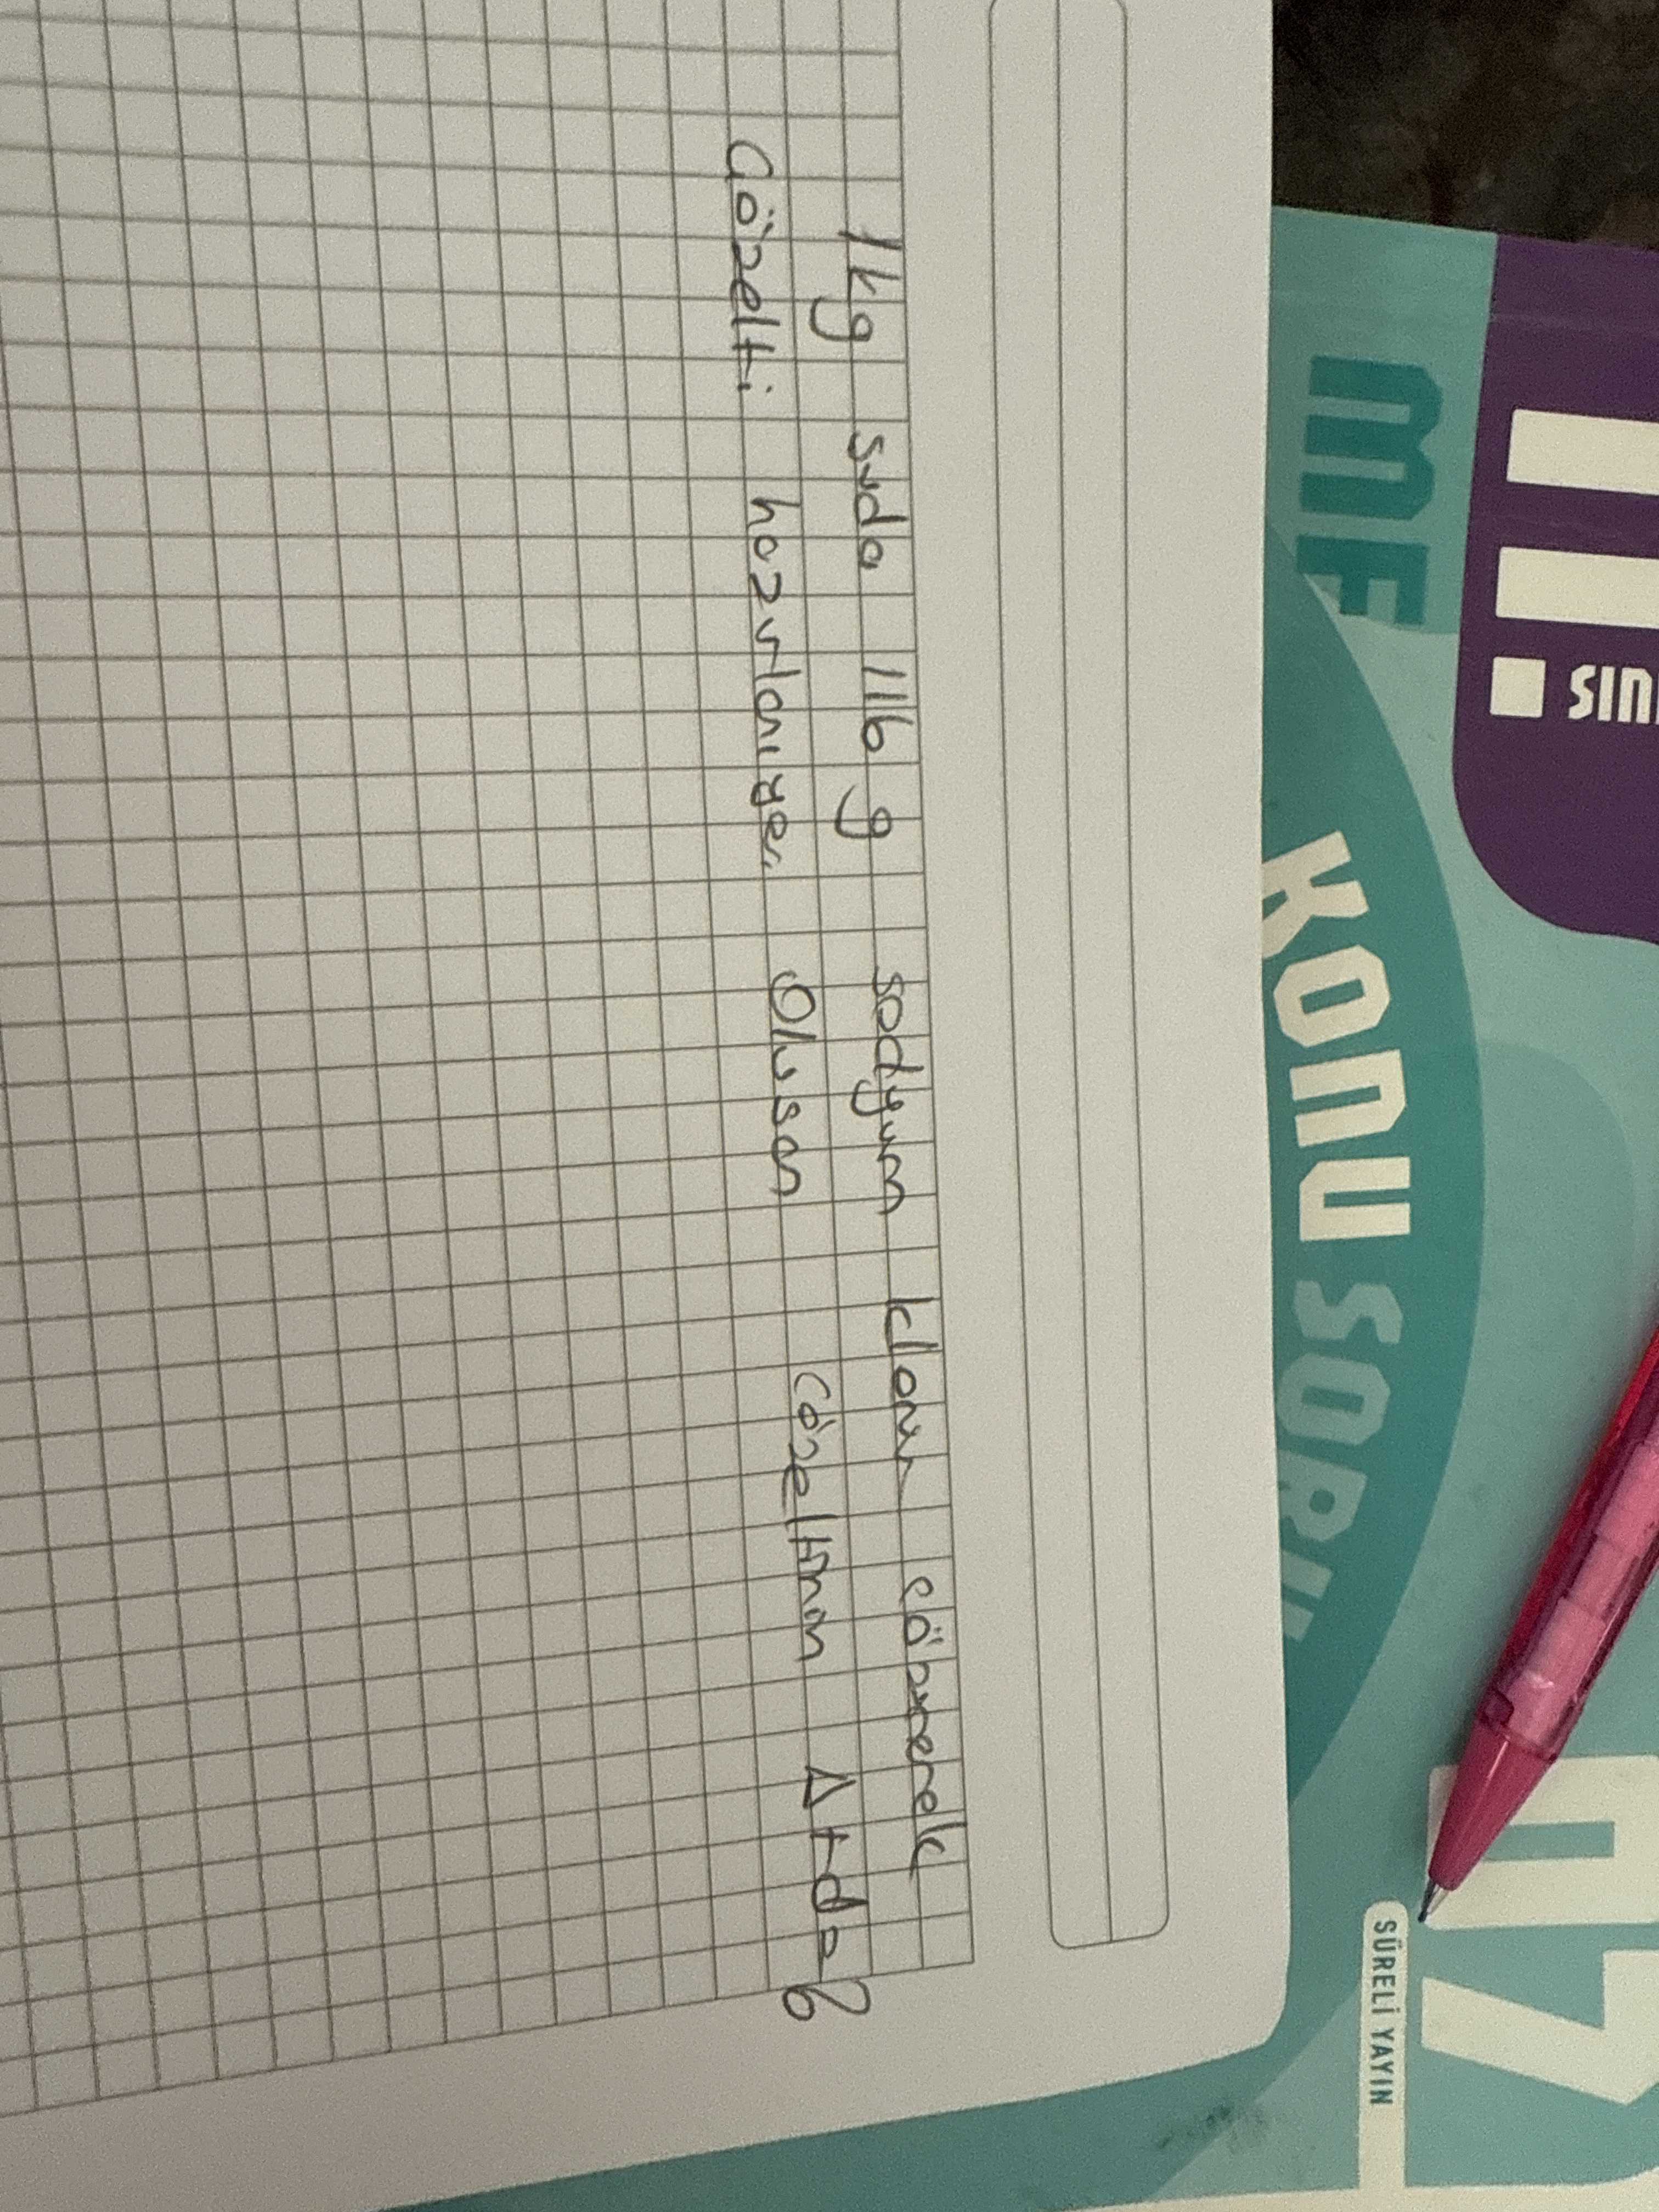 1kg suda 116 g sodyum klorur çözücerek
Çözelti hazırlanıyor. Oluşan çözeltinin Δtd=?
MF
11.
SINI
KONU SORU
SÜRELİ YAYIN